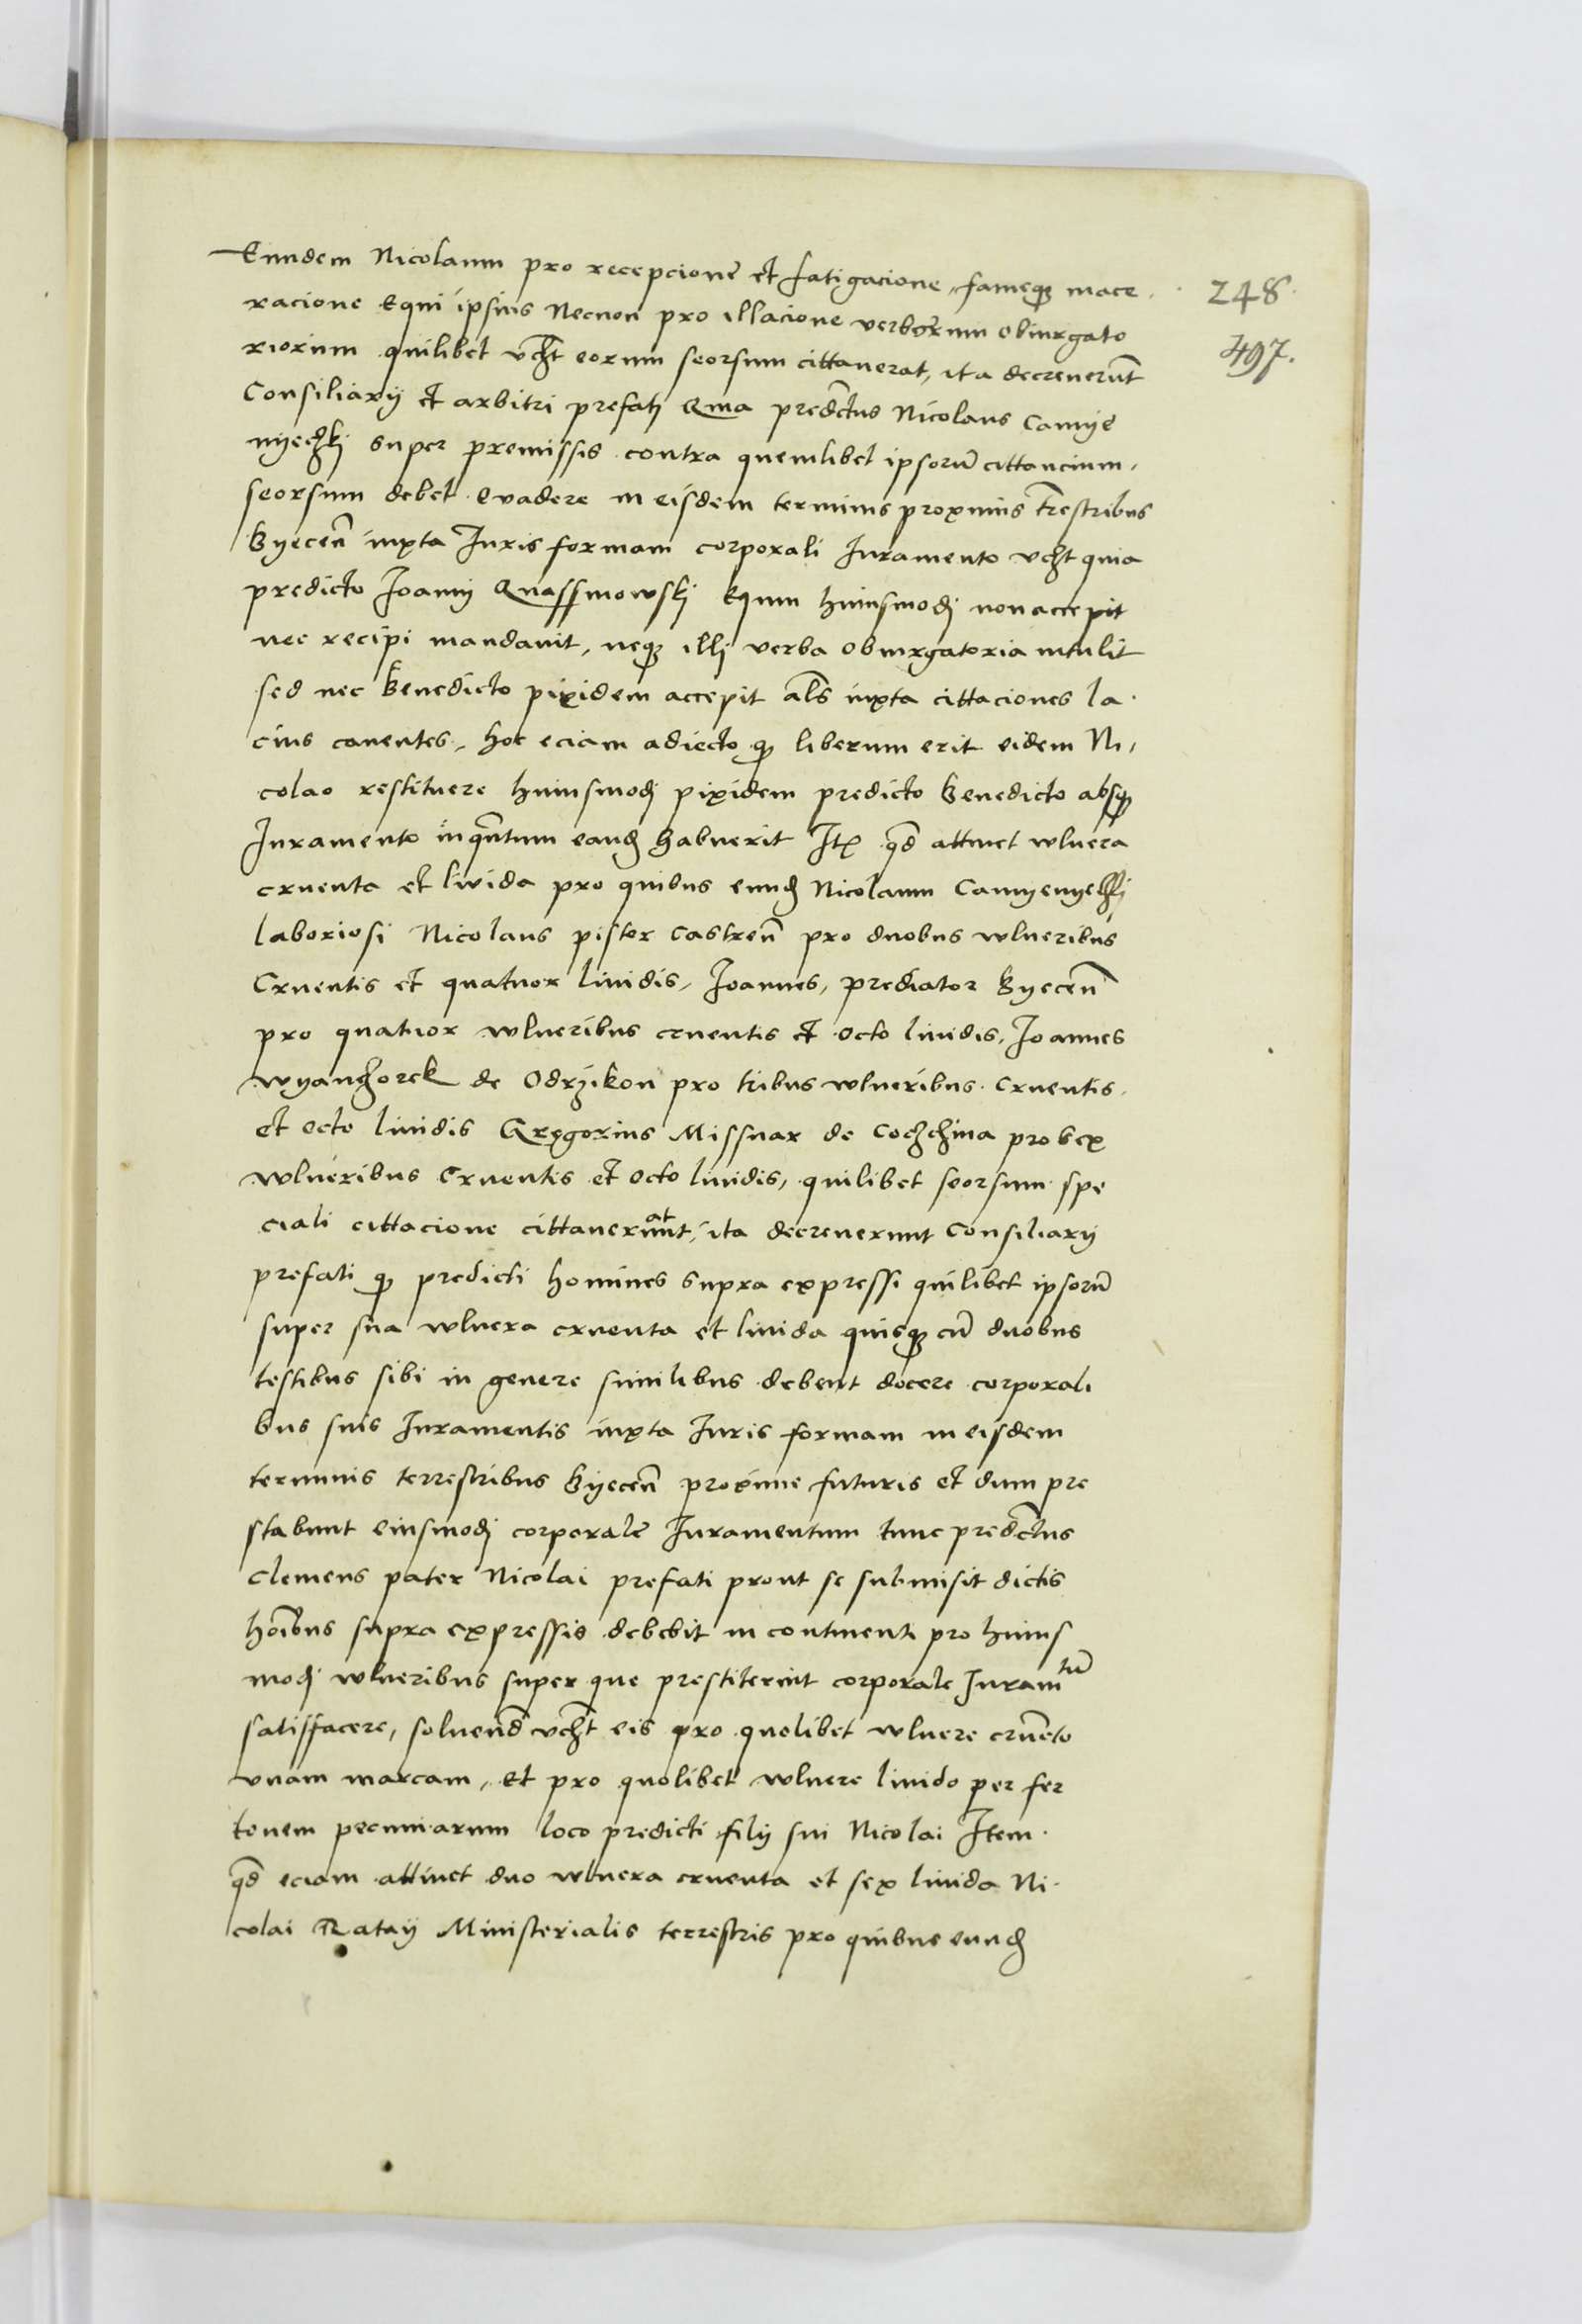 Eundem Nicolaum pro recepcione et fatigacione, fameque mace
248
racione Equi ipsius Necnon pro illacione verborum obiurgato
riorum quilibet vcht eorum seorsum cittauerat, ita decreuerunt
497.
Consiliarij et arbitri prefatj Quia predictus Nicolaus Camÿe
nÿeczkj super premissis contra quemlibet ipsorũ cittancium,
seorsum debet Euadere in eisdem terminis proximis trestribus
Byeceñ iuxta Iuris formam corporali Iuramento vcht quia
predicto Ioannj Quassmowskj Equm huiusmodj non accepit
nec recipi mandauit, neque illj verba obiurgatoria intulit
sed nec Benedicto pixidem accepit als iuxta cittaciones la
cius canentes, hoc eciam adiecto quod liberum erit eidem Ni,
colao restituere huiusmodj pixidem predicto Benedicto absque
Iuramento inquantum eand habuerit Itẽ quod attinet wlnera
cruenta et livida pro quibus eund Nicolaum Camyenyeczkj
laboriosi Nicolaus pistor Castreñ pro duobus wlneribus
Cruentis et quatuor liuidis, Ioannes, prediator Byeceñ
pro quatuor wlneribus cruentis et octo liuidis, Ioannes
Wyanczorek de Odrzikon pro tribus wlneribus cruentis
et octo liuidis Gregorius Missnar de Coczchina pro sex
wlneribus Cruentis et octo liuidis, quilibet seorsum spe
ciali cittacione cittauerunt at, ita decreuerunt Consiliarij
prefati quod predicti homines supra expressi quilibet ipsorũ
super sua wlnera cruenta et liuida quisque cũ duobus
testibus sibi in genere similibus debent docere corporali
bus suis Iuramentis iuxta Iuris formam in eisdem
terminis terrestribus Byeceñ proxime futuris et dum pre
stabunt eiusmodj corporale Iuramentum tunc predictus
Clemens pater Nicolai prefati prout se submisit dictis
hoĩbus supra expressis debebit in continenti pro huius
modj wlneribus super que prestiterint corporale Iuramtũ
satisfacere, soluend vcht eis pro quolibet wlnere cruẽto
vnam marcam, et pro quolibet wlnere liuido per fer
tonem pecuniarum loco predicti filij sui Nicolai Item
quod eciam attinet duo wlnera cruenta et sex liuida Ni
colai Rataÿ Ministerialis terrestris pro quibus eund